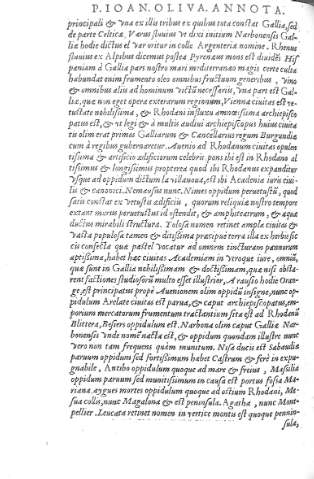 P. IOAN. OLIVA. ANNOTA.
principali & una ex illis tribus ex quibus tota constat Gallia, sed
de parte Celticæ. Varus fluvius ut dixi initium Narbonensis Gal-
liæ hodie dictus el var oritur in colle Argenteria nomine. Rhenus
fluvius ex Alpibus dicemus postea Pyrenæus mons est dividens His
paniam à Gallia pars nostro mari mediterraneo magis certe culta
habundat enim frumento oleo omnibus fructuum generibus, vino
& omnibus aliis ad hominum victum necessariis, una pars est Gal
liæ, quæ non eget opera exterarum regionum, Vienna civitas est ve-
tustate nobilissima, & Rhodani in fluxu amoenissima archiepisco
patus est, & ut legi & à multis audivi archiepiscopus huius civita
tis olim erat primas Galliarum & Cancellarius regum Burgundiæ
cum à regibus gubernaretur. Avenio ad Rhodanum civitas opulen
tissima & artificio ædificiorum celebris. pons ibi est in Rhodano al
tissimus & longissimus propterea quod ibi Rhodanus expanditur
usque ad oppidum dictum la villanova, est ibi Academia iuris civi-
lis & canonici. Nemausus nunc Nimes oppidum pervetustum, quod
satis constat ex vetustis ædificiis, quorum reliquiæ nostro tempore
extant mœris pervetustus id ostendit, & amphitearum, & aquæ
ductus mirabili structura. Tolosa nomen retinet ampla civitas &
vasta populosa tamen & ditissima præcipue terra illa ex herbosis
eis consecta quæ pastel vocatur ad omnem tincturam pannorum
aptissima, habet hæc civitas Academiam in utroque iure, omniũ,
quæ sunt in Gallia nobilissimam & doctissimam, quæ nisi obsta-
rent factiones studiosorũ multo esset illustrior, Arausio hodie Oran-
ge, est principatus propè Aumionem olim oppidũ insigne, nunc op-
pidulum Arelate civitas est parva, & caput archiepiscopatus, em-
porium mercatorum frumentum tractantium sita est ad Rhodanũ
Bliterra, Besers oppidulum est. Narbona olim caput Galliæ Nar-
bonensis unde nomẽ nacta est, & oppidum quondam illustre nunc
vero non tam frequens quàm munitum. Nisa ducis est Sabaudiæ
parvum oppidum sed fortissimum habet Castrum & ferè in expu-
gnabile, Antibo oppidulum quoque ad mare & freius, Massilia
oppidum parvum sed munitissimum in causa est portus fossa Ma
riana aygues mortes oppidulum quoque ad ostium Rhodani, Me-
sua collis, nunc Magalona & est peninsula. Agatha, nunc Mont-
pellier. Leucata retinet nomen in vertice montis est quoque penin-
sula,